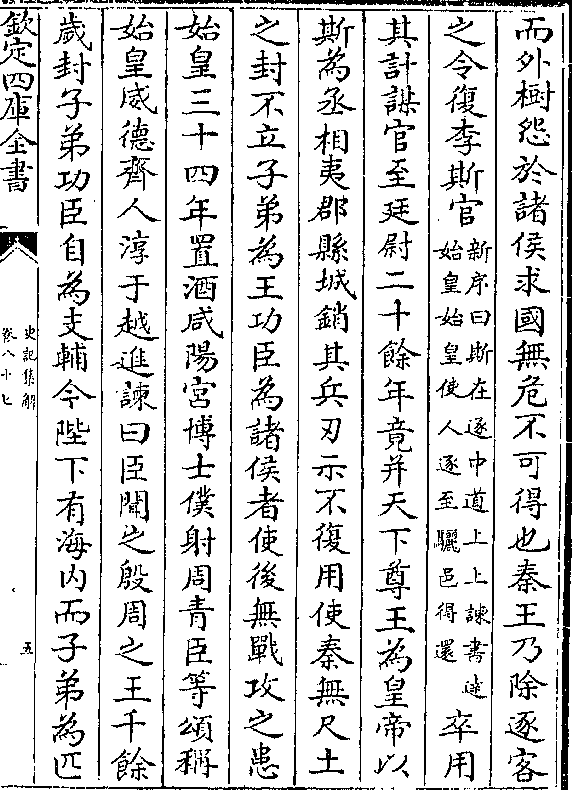 而外樹怨於諸侯求國無危不可得也秦王乃除逐客
之令復李斯官新序曰斯在逐中道上上諫書達始皇始皇使人逐至驪邑得還卒用
其計謀官至廷尉二十餘年竟并天下尊王為皇帝以
斯為丞相夷郡縣城銷其兵刃示不復用使秦無尺土
之封不立子弟為王功臣為諸侯者使後無戰攻之患
始皇三十四年置酒咸陽宮博士僕射周青臣等頌稱
始皇威德齊人淳于越進諫曰臣聞之殷周之王千餘
歲封子弟功臣自為支輔今陛下有海内而子弟為匹
欽定四庫全書
史記集解
卷八十七
五